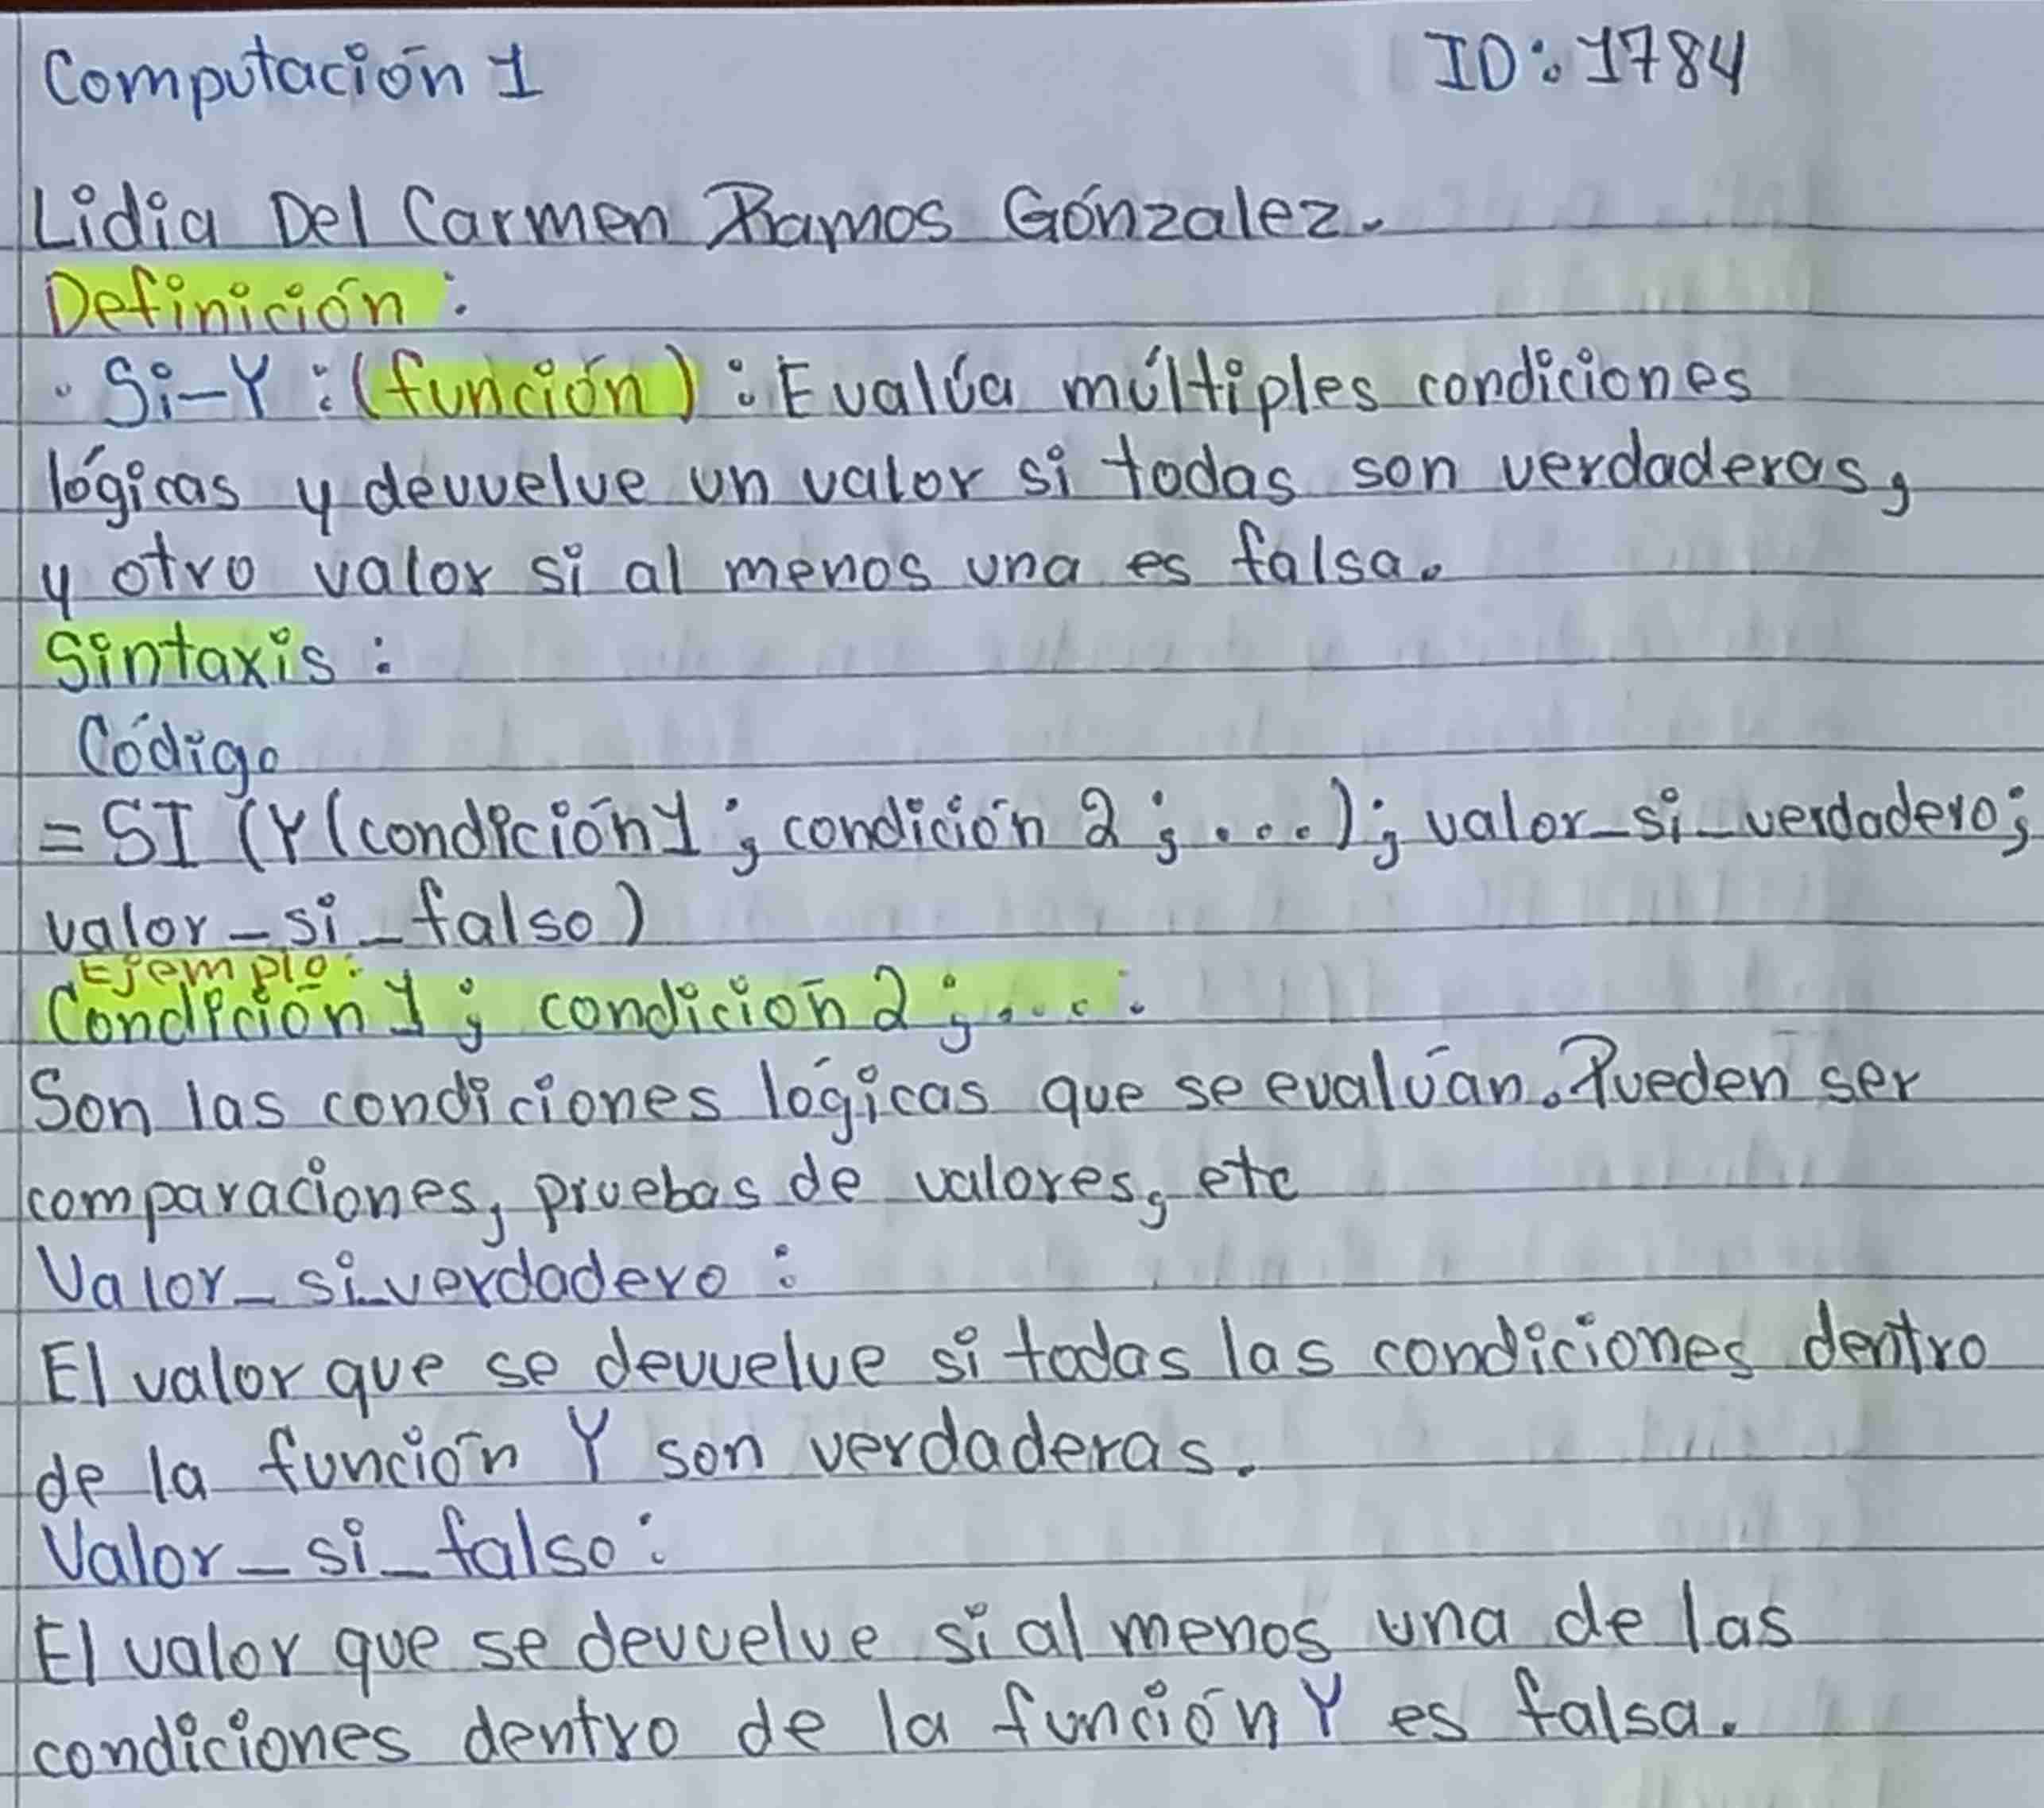 Computación 1 ID: 1784
Lidia Del Carmen Ramos Gónzalez.
Definición:
· Si-Y: (función): Evalúa múltiples condiciones
lógicas y devuelve un valor si todas son verdaderas,
y otro valor si al menos una es falsa.
Sintaxis:
Código
= SI (Y(condición1; condición 2; ...); valor_si_verdadero;
valor_si_falso)
Ejemplo:
Condición1; condición2; ....
Son las condiciones lógicas que se evalúan. Pueden ser
comparaciones, pruebas de valores, etc
Valor_si_verdadero:
El valor que se devuelve si todas las condiciones dentro
de la función Y son verdaderas.
Valor_si_falso:
El valor que se devuelve si al menos una de las
condiciones dentro de la función Y es falsa.